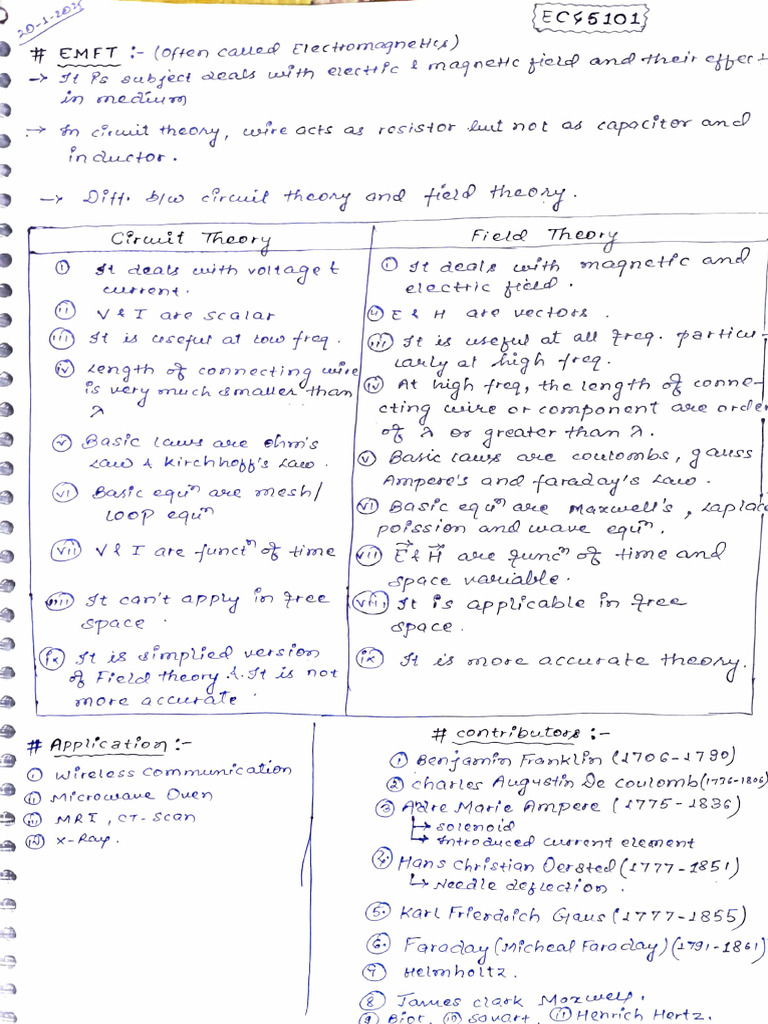 20-1-2025
ECS5101
# EMFT :- (Often called Electromagnetics)
→ It is subject deals with electric & magnetic field and their effect
in medium
→ In circuit theory, wire acts as resistor but not as capacitor and
inductor.
→ Diff. b/w circuit theory and field theory.
Circuit Theory
(i) It deals with voltage &
current.
(ii) V & I are scalar
(iii) It is useful at low freq.
(iv) Length of connecting wire
is very much smaller than
λ
(v) Basic laws are ohm's
law & Kirchhoff's law.
(vi) Basic equⁿ are mesh/
LOOP equⁿ
(vii) V & I are functⁿ of time
(viii) It can't apply in free
space.
(ix) It is simplied version
of Field theory & It is not
more accurate.
Field Theory
(i) It deals with magnetic and
electric field.
(ii) E & H are vectors.
(iii) It is useful at all freq. particu-
larly at high freq.
(iv) At high freq, the length of conne-
cting wire or component are order
of λ or greater than λ.
(v) Basic laws are coulombs, gauss
Ampere's and faraday's law.
(vi) Basic equⁿ are Maxwell's, Laplac
poission and wave equⁿ.
(vii) E⃗ & H⃗ are funcⁿ of time and
space variable.
(viii) It is applicable in free
space.
(ix) It is more accurate theory.
# Application :-
(i) Wireless communication
(ii) Microwave Oven
(iii) MRI, CT-Scan
(iv) X-Ray.
# contributors :-
① Benjamin Franklin (1706-1790)
② Charles Augustin De Coulomb (1736-1806)
③ Adre Marie Ampere (1775-1836)
↳ Solenoid
↳ Introduced current element
④ Hans Christian Oersted (1777-1851)
↳ Needle deflection.
⑤ Karl Frierdoich Gaus (1777-1855)
⑥ Faraday (Micheal Faraday) (1791-1861)
⑦ Helmholtz.
⑧ James Clark Maxwell.
⑨ Biot, ⑩ Savart, ⑪ Henrich Hertz.